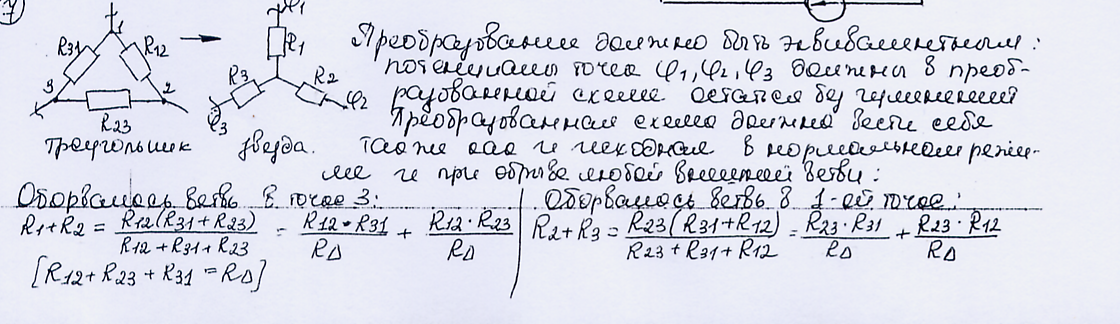 7
1 R31 R12 3 2 R23
φ1 R1 R3 R2 φ2 φ3
треугольник звезда.
Преобразование должно быть эквивалентным:
потенциалы точек φ1, φ2, φ3 должны в преоб-
разованной схеме остаться без изменений
Преобразованная схема должна вести себя
так же как и исходная в нормальном режи-
ме и при обрыве любой внешней ветви:
Оборвалась ветвь в точке 3:
R1+R2 = R12(R31+R23) / R12+R31+R23 = R12·R31 / RΔ + R12·R23 / RΔ
[R12+R23+R31=RΔ]
Оборвалась ветвь в 1-ой точке:
R2+R3 = R23(R31+R12) / R23+R31+R12 = R23·R31 / RΔ + R23·R12 / RΔ